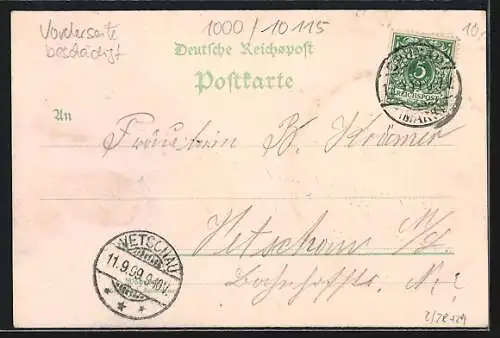 Vorderseite
beschädigt
1000/10115
Deutsche Reichspost
Postkarte
5
REICHSPOST
An
Fräulein B. Krämer
Vetschau N/L.
Bahnhofstr.
VETSCHAU
11.9.99.9-10V.